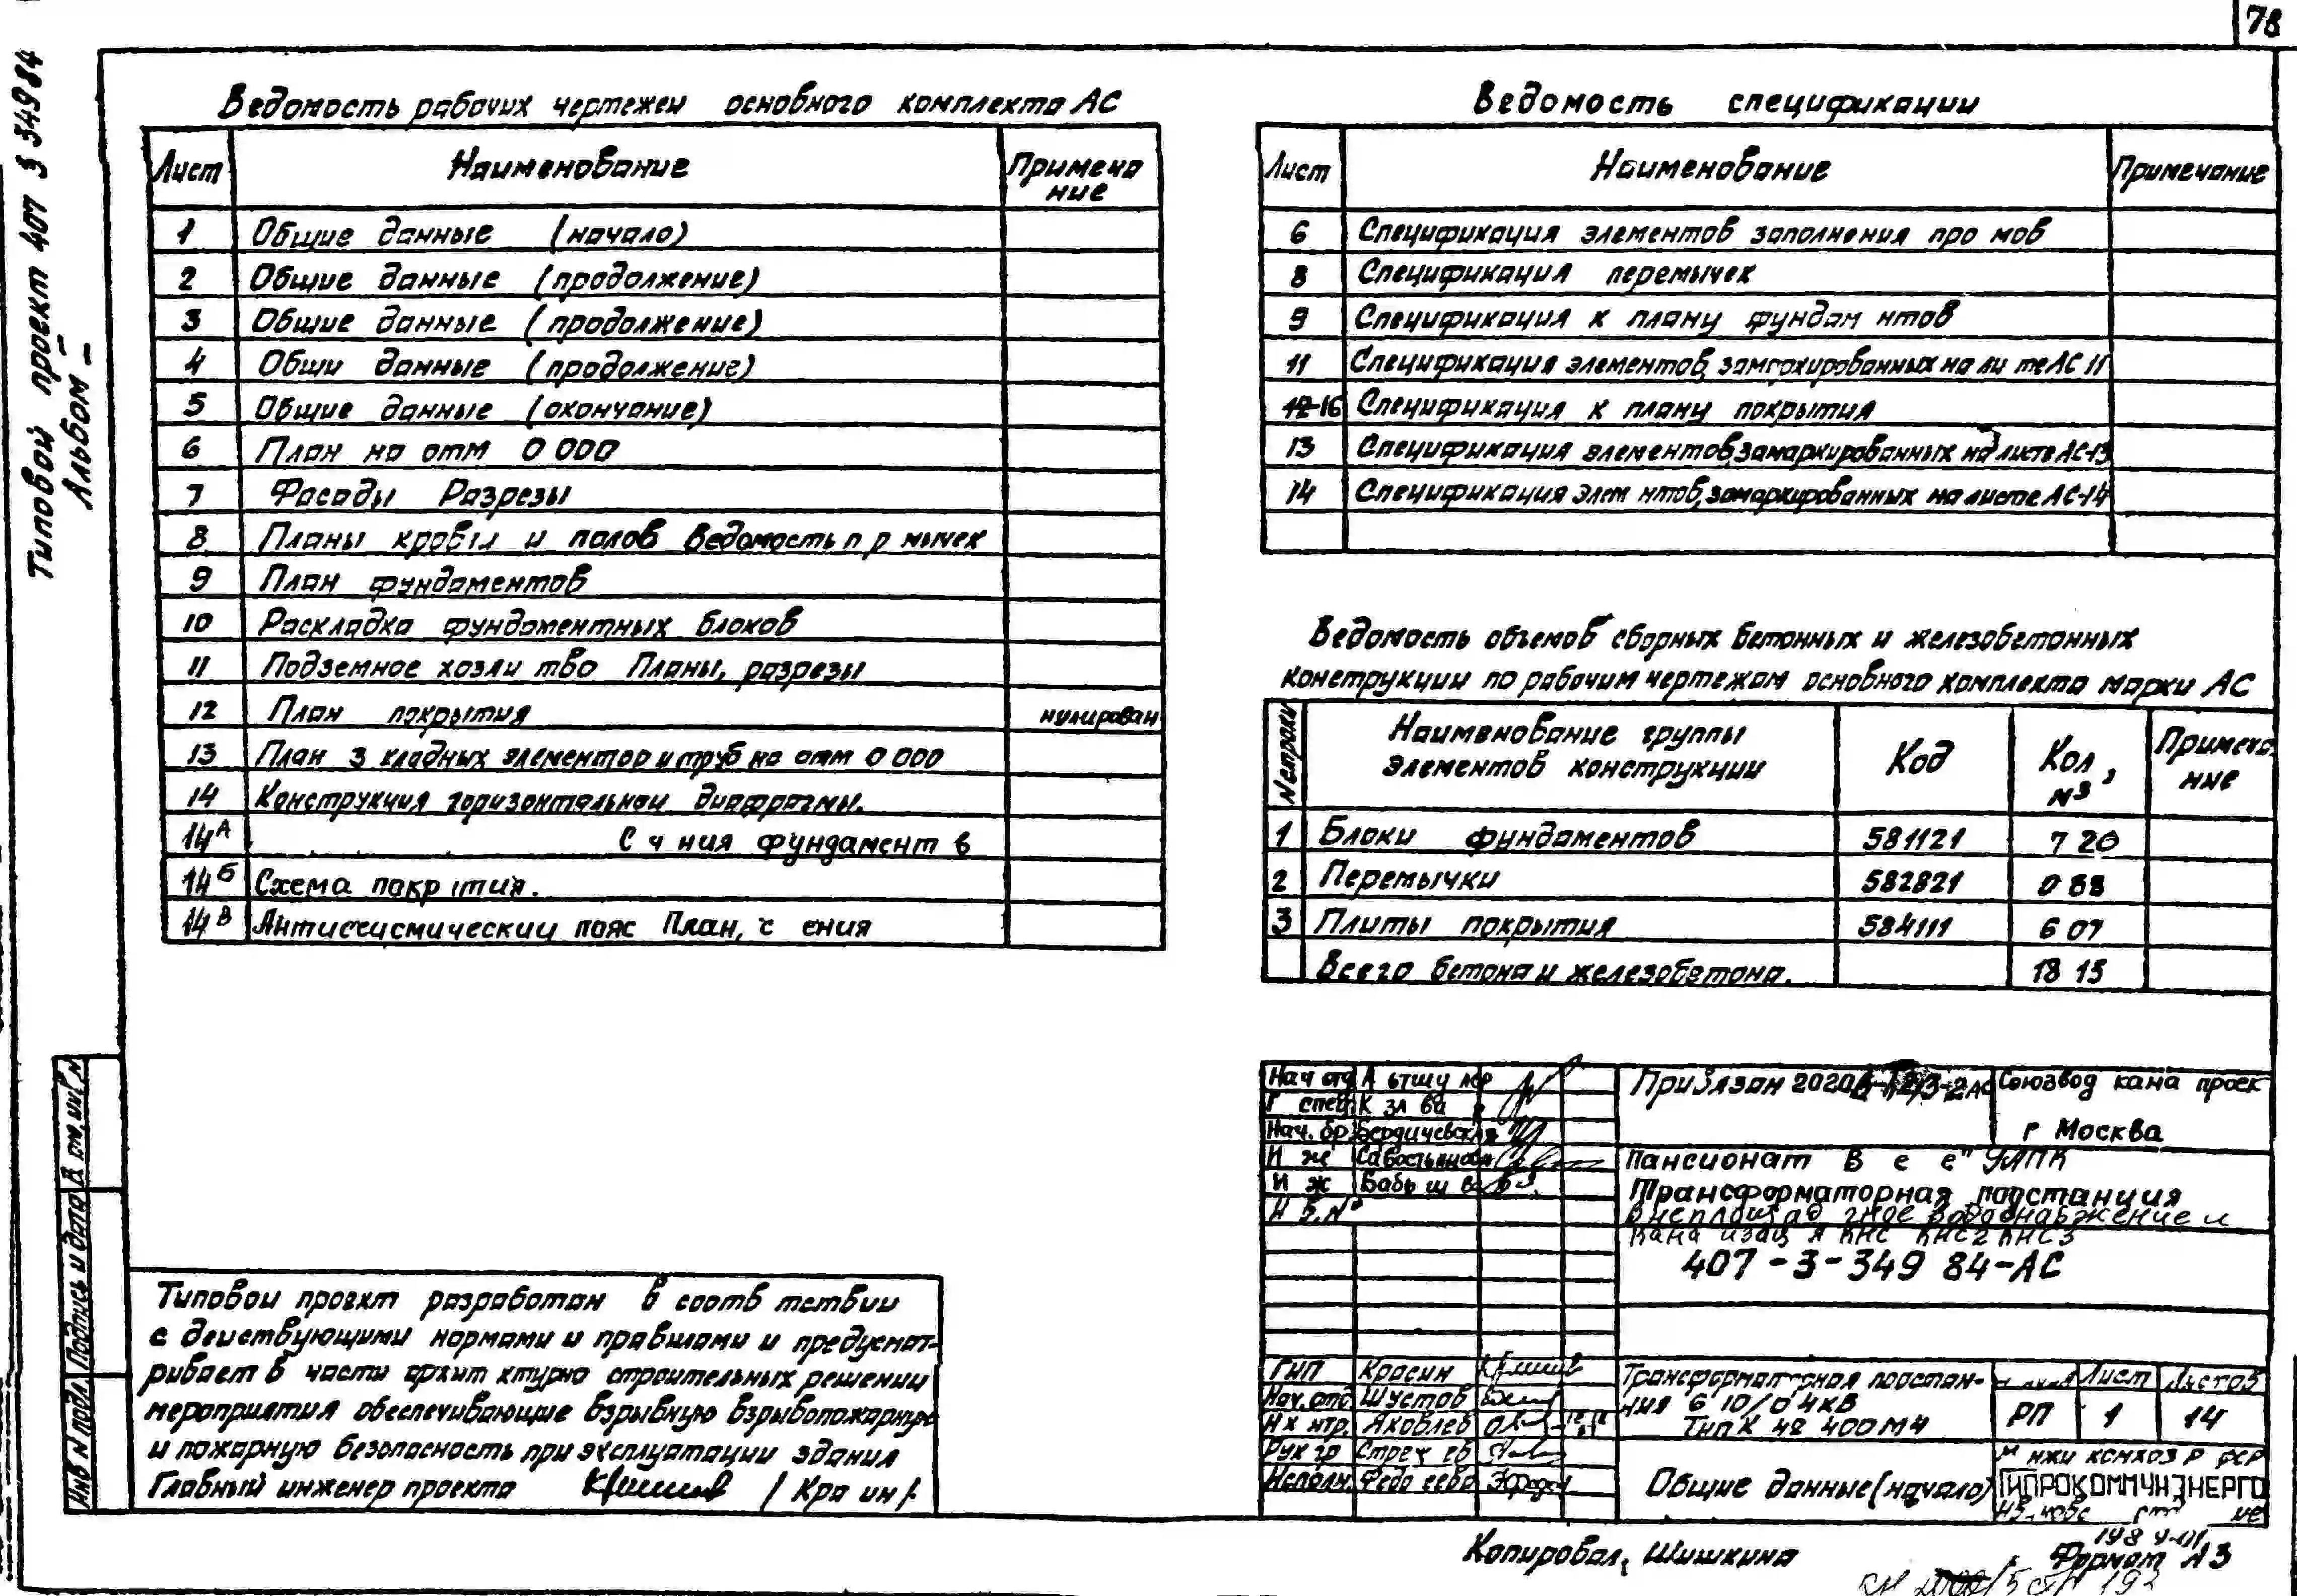 78
Типовой проект 407 3 34984
Альбом
Ведомость рабочих чертежеи основного комплекта АС
Лист Наименование Примеча
ние
1 Общие данные (начало)
2 Общие данные (продолжение)
3 Общие данные (продолжение)
4 Общи данные (продолжение)
5 Общие данные (окончание)
6 План на отм 0 000
7 Фасады Разрезы
8 Планы кровли и полов Ведомость п р мычек
9 План фундаментов
10 Раскладка фундаментных блоков
11 Подземное хозяи тво Планы, разрезы
12 План покрытия нулирован
13 План з кладных элементов и труб на отм 0 000
14 Конструкция горизонтальнои диафрагмы.
14А С ч ния фундамент в
14Б Схема покрытия.
14В Антисеисмическии пояс План, с ения
Ведомость спецификации
Лист Наименование Примечание
6 Спецификация элементов заполнения про мов
8 Спецификация перемычек
9 Спецификация к плану фундам нтов
11 Спецификация элементов, замаркированных на ли те АС 11
12 16 Спецификация к плану покрытия
13 Спецификация элементов, замаркированных на листе АС-13
14 Спецификация элем нтов, замаркированных на листе АС-14
Ведомость объемов сборных бетонных и железобетонных
конструкции по рабочим чертежам основного комплекта марки АС
N строки Наименование группы Код Кол, Примеча
элементов конструкции м3 ние
1 Блоки фундаментов 581121 7 20
2 Перемычки 582821 0 88
3 Плиты покрытия 584111 6 07
Всего бетона и железобетона. 18 15
Нач отд
Г спец К зл ва
Нач. бр Бердичевская
И ж Савостьянова
И ж
Привязан Союзвод кана проек
г Москва
Пансионат В е е" УАПК
Трансформаторная подстанция
Внеплощад чное водоснабжение и
кана изац я КНС КНС2 КНС3
407-3-349 84-АС
ГИП Красин
Нач. отд Шустов
Н к нтр. Яковлев
Рук гр Стрех ев
Исполн. Федо еева
Трансформаторная подстан-
ния 6 10/0 4кВ
Тип К 42 400 М4
Лист Листов
РП 1 14
Общие данные (начало)
м нжи комхоз Р ФСР
ГИПРОКОММУНЭНЕРГО
Типовои проект разработан в соотв тствии
с деиствующими нормами и правилами и предусмат-
ривает в части архит ктурно строительных решении
мероприятия обеспечивающие взрывную взрывопожарную
и пожарную безопасность при эксплуатации здания
Главный инженер проекта / Кра ин /
Инв N подл. Подпись и дата В ам. инв N
Копировал, Шишкина
Формат А3